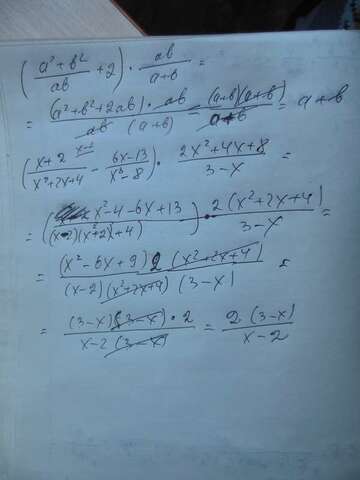 ( (a² + b²)/(ab) + 2 ) · ab/(a+b) =
= (a² + b² + 2ab) · ab / ab (a+b) = (a+b)(a+b) / a+b = a + b
( (x+2)/(x²+2x+4) - (6x-13)/(x³-8) ) · (2x²+4x+8)/(3-x) =
x-2
= ( x²-4-6x+13 / (x-2)(x²+2x+4) ) · 2(x²+2x+4) / 3-x =
= (x²-6x+9) 2 (x²+2x+4) / (x-2)(x²+2x+4) (3-x) =
= (3-x)(3-x) · 2 / x-2 (3-x) = 2(3-x) / x-2